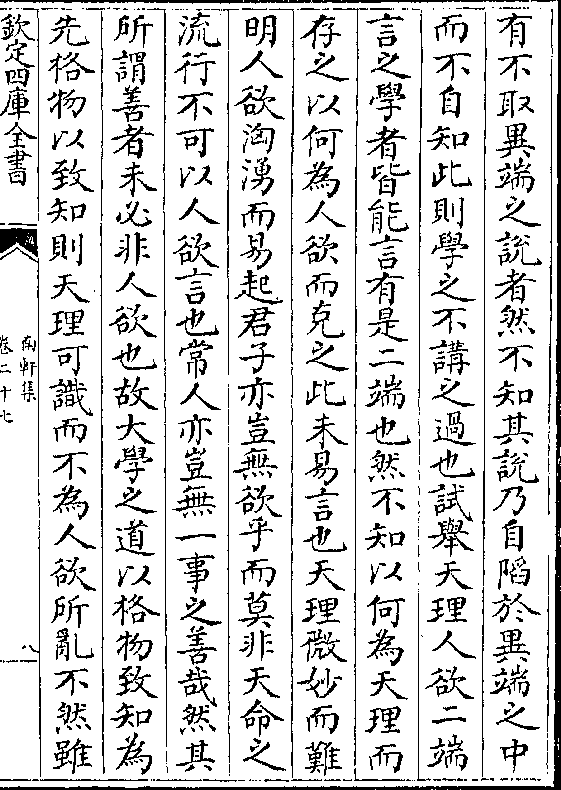 有不取異端之說者然不知其說乃自陷於異端之中
而不自知此則學之不講之過也試舉天理人欲二端
言之學者皆能言有是二端也然不知以何為天理而
存之以何為人欲而克之此未易言也天理微妙而難
明人欲洶湧而易起君子亦豈無欲乎而莫非天命之
流行不可以人欲言也常人亦豈無一事之善哉然其
所謂善者未必非人欲也故大學之道以格物致知為
先格物以致知則天理可識而不為人欲所亂不然雖
欽定四庫全書
南軒集
卷二十七
八